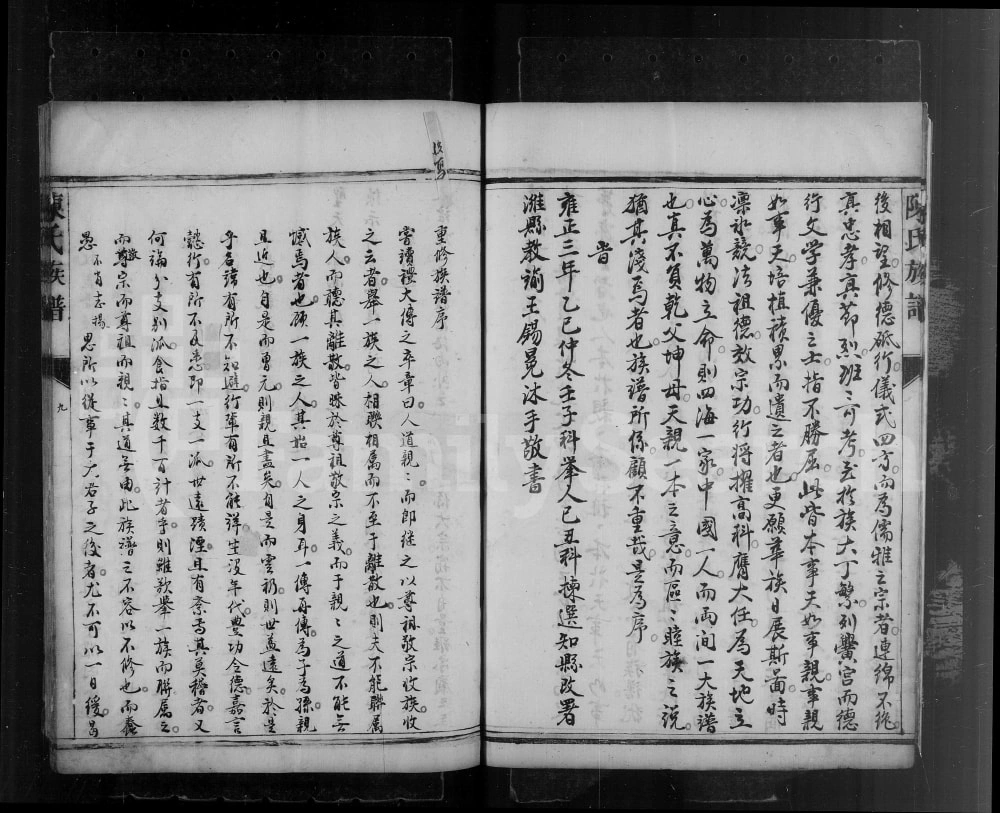 後相望修德砥行儀式四方而為儒雅之宗者連綿不絕
真忠孝真節烈班〻可考至於族大丁繁列黌宮而德
行文學兼優之士指不勝屈此皆本事天如事親事親
如事天培植積累而遺之者也更願華族日展斯啚時
凜冰兢法祖德敦宗功行將擢高科膺大任為天地立
心為萬物立命則四海一家中國一人而兩間一大族譜
也真不負乾父坤母天親一本之意而區〻睦族之說
猶其淺焉者也族譜所係顧不重哉是為序
旹
雍正三年乙巳仲冬壬子科舉人己丑科揀選知縣改署
濰縣教諭王錫冕沐手敬書
陳氏族譜
重修族譜序
嘗讀禮大傳之卒章曰人道親〻而即繼之以尊祖敬宗收族收
之云者舉一族之人相聯相属而不至于離散也則夫不能聯属
族人而聽其離散皆昧於尊祖敬宗之義而于親〻之道不能無
憾焉者也顧一族之人其始一人之身耳一傳再傳為子為孫親
且近也自是而曾元則親且盡矣自是而雲礽則世益遠矣於是
乎名諱有所不知避行輩有所不能詳生没年代豊功令德嘉言
懿行有所不及悉即一支一派世遠蹟湮且有紊焉其莫稽者又
何論分支别派食指且数千百計者乎則雖欲舉一族而聯属之
而尊宗而尊祖而親〻其道無由此族譜之不容以不修也而
愚不肖志揚思所以從事于大君子之後者尤不可以一日緩昌
陳氏族譜
九